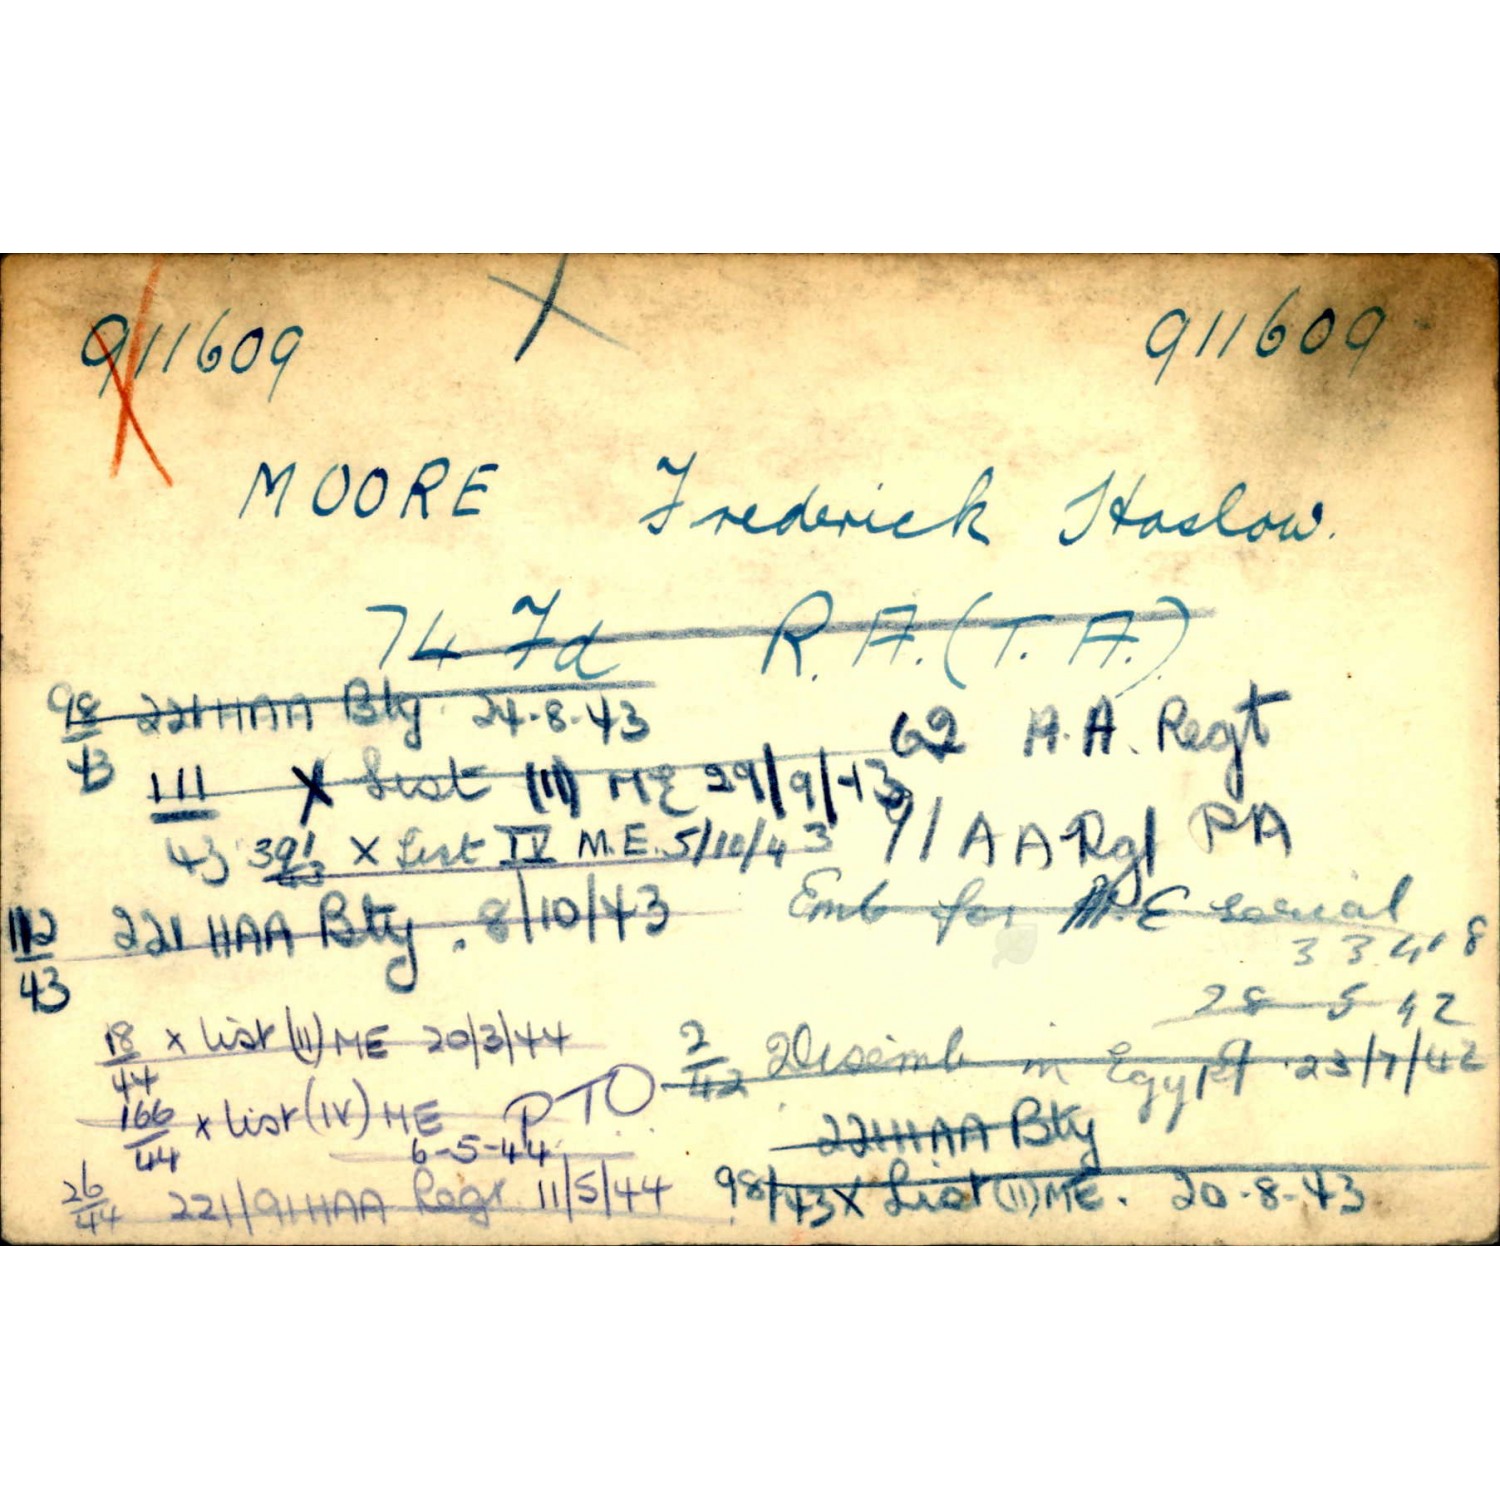 911609 X 911609
MOORE Frederick Haslow.
74 Fd R.A. (T.A.)
98/43 221 HAA Bty. 24-8-43
62 A.A. Regt
111/43 X List (II) ME 29/9/43
91 AA Rgt RA
X List IV M.E. 5/10/43
Emb for M.E serial
112/43 221 HAA Bty. 8/10/43
28 5 42
18/44 x List (II) ME 20/3/44
Disemb in Egypt 23/7/42
166/44 x List (IV) ME PTO
6-5-44
221 HAA Bty
26/44 221/91 HAA Regt 11/5/44
98/43 X List (II) ME. 20-8-43